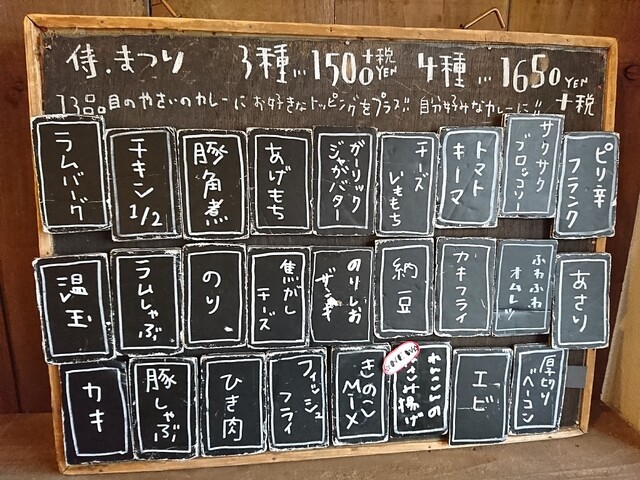 侍.まつり 3種… 1500YEN +税 4種… 1650YEN +税
13品目のやさいのカレーにお好きなトッピングをプラス!! 自分好みなカレーに!!
ラムバーグ
チキン1/2
豚角煮
あげもち
ガーリックジャガバター
チーズいももち
トマトキーマ
サクサクブロッコリー
ピリ辛フランク
温玉
ラムしゃぶ
のり
焦がしチーズ
のりしお
納豆
カキフライ
ふわふわオムレツ
あさり
カキ
豚しゃぶ
ひき肉
フィッシュフライ
きのこMIX
れんこんの
揚げ
エビ
厚切りベーコン